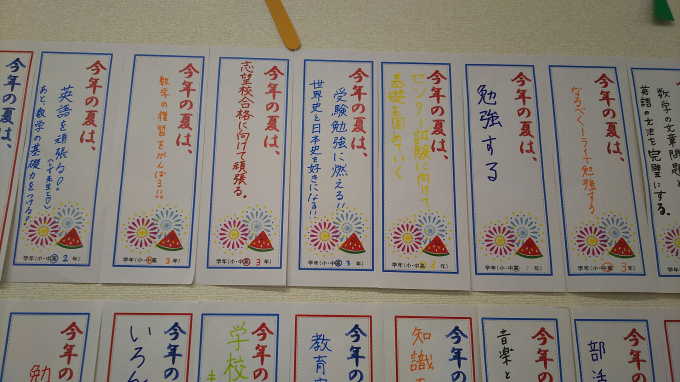 今年の夏は、
今年の夏は、
英語を頑張る!?
あと、数学の基礎力をつける!?
学年(小・中・高 2 年)
今年の夏は、
数学の復習をがんばる!!
学年(小・中・高 3 年)
今年の夏は、
志望校合格に向けて頑張る。
学年(小・中・高 3 年)
今年の夏は、
受験勉強に燃える!!
世界史と日本史を好きになる!!
学年(小・中・高 3 年)
今年の夏は、
センター試験に向けて
基礎を固めていく
学年(小・中・高 3 年)
今年の夏は、
勉強する
学年(小・中・高 年)
今年の夏は、
なるべくドライで勉強する
学年(小・中・高 3 年)
数学の文章問題と
英語の文法を完璧にする。
学年(小・中
今年の
勉
今年の
いろん
今年の
学校
今年の
教育
今年の
知識
今年の
音楽と
今年の
部活